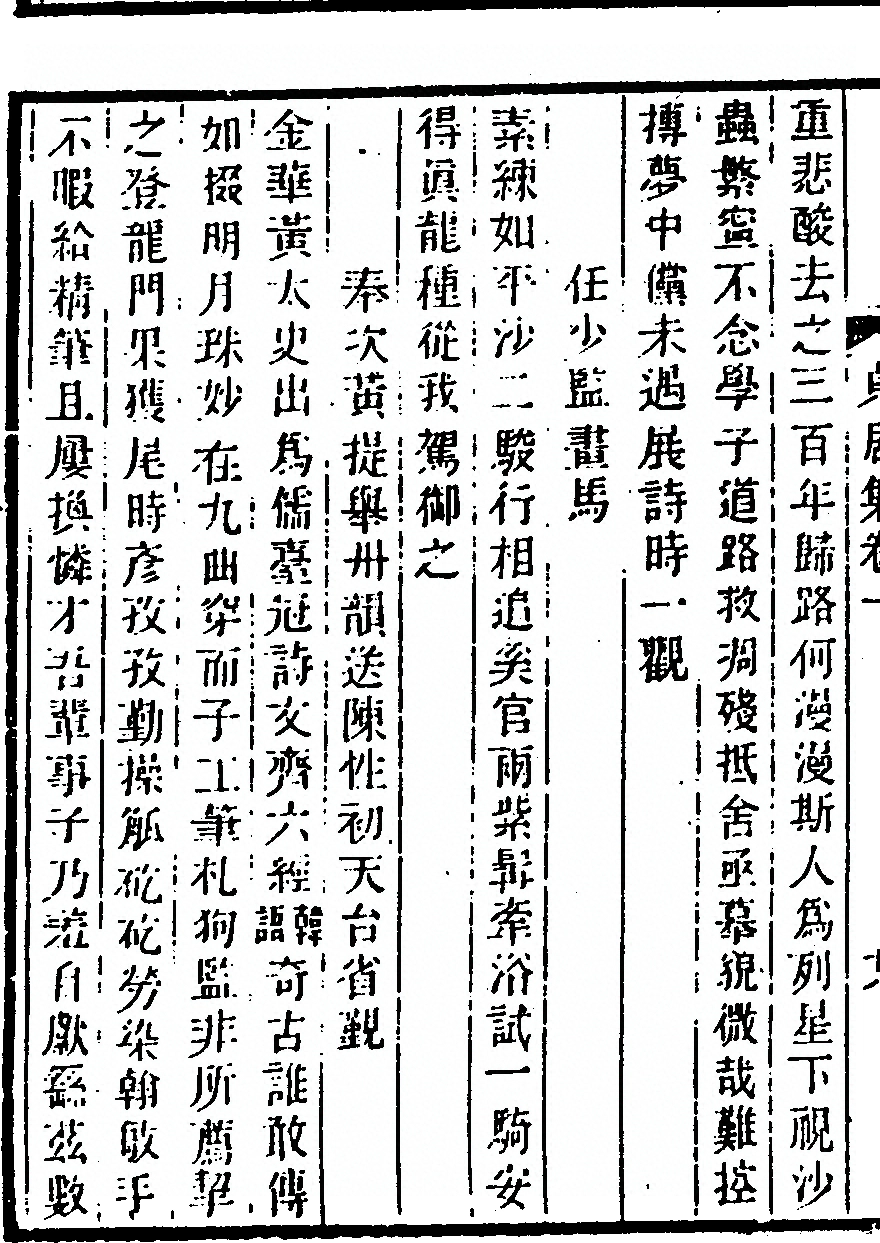 貞居集卷一
重悲酸去之三百年歸路何漫漫斯人爲列星下視沙
蟲繁寧不念學子道路救凋殘抵舍亟慕貌微哉難控
摶夢中儻未遇展詩時一觀
任少監畫馬
素練如平沙二駿行相追奚官兩紫髯牽浴試一騎安
得眞龍種從我駕御之
奉次黃提舉卅韻送陳性初天台省覲
金華黃太史出爲儒臺冠詩文齊六經韓語奇古誰敢傳
如掇明月珠妙在九曲穿而子工筆札狗監非所薦挈
之登龍門果獲尾時彥孜孜勤操觚矻矻勞染翰敏手
不暇給精筆且屢換憐才吾輩事子乃差自獻繇茲數